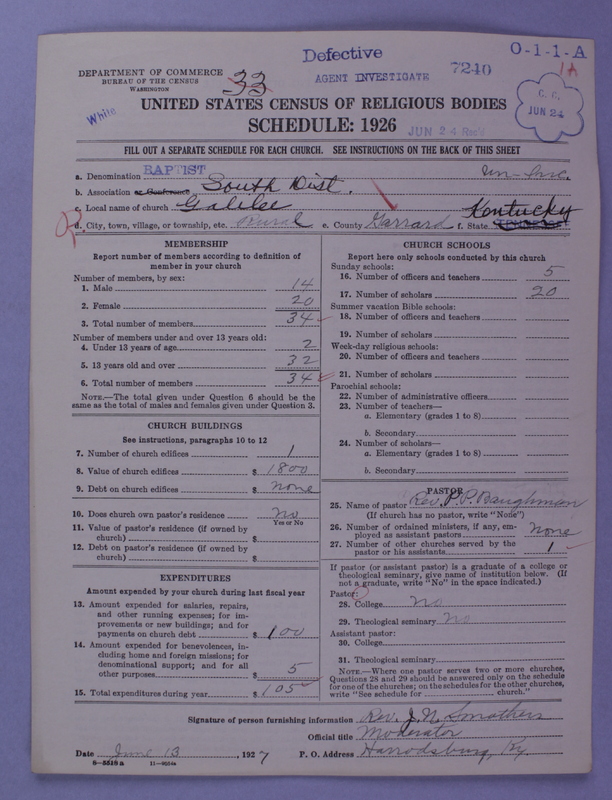 Defective
O-1-1-A
DEPARTMENT OF COMMERCE
BUREAU OF THE CENSUS
WASHINGTON
33
AGENT INVESTIGATE
7240
1A
White
C. C.
JUN 24
UNITED STATES CENSUS OF RELIGIOUS BODIES
SCHEDULE: 1926
JUN 24 Rec'd
FILL OUT A SEPARATE SCHEDULE FOR EACH CHURCH. SEE INSTRUCTIONS ON THE BACK OF THIS SHEET
a. Denomination BAPTIST Un-Inc.
b. Association or Conference South Dist.
c. Local name of church Galilee Kentucky
R d. City, town, village, or township, etc. Rural e. County Garrard f. State TENNESSEE
MEMBERSHIP
Report number of members according to definition of
member in your church
Number of members, by sex:
1. Male 14
2. Female 20
3. Total number of members 34
Number of members under and over 13 years old:
4. Under 13 years of age 2
5. 13 years old and over 32
6. Total number of members 34
NOTE.—The total given under Question 6 should be the
same as the total of males and females given under Question 3.
CHURCH BUILDINGS
See instructions, paragraphs 10 to 12
7. Number of church edifices 1
8. Value of church edifices $ 1800
9. Debt on church edifices $ none
10. Does church own pastor's residence no
Yes or No
11. Value of pastor's residence (if owned by
church) $
12. Debt on pastor's residence (if owned by
church) $
EXPENDITURES
Amount expended by your church during last fiscal year
13. Amount expended for salaries, repairs,
and other running expenses; for im-
provements or new buildings; and for
payments on church debt $ 100
14. Amount expended for benevolences, in-
cluding home and foreign missions; for
denominational support; and for all
other purposes $ 5
15. Total expenditures during year $ 105
CHURCH SCHOOLS
Report here only schools conducted by this church
Sunday schools:
16. Number of officers and teachers 5
17. Number of scholars 20
Summer vacation Bible schools:
18. Number of officers and teachers
19. Number of scholars
Week-day religious schools:
20. Number of officers and teachers
21. Number of scholars
Parochial schools:
22. Number of administrative officers
23. Number of teachers—
a. Elementary (grades 1 to 8)
b. Secondary
24. Number of scholars—
a. Elementary (grades 1 to 8)
b. Secondary
PASTOR
25. Name of pastor Rev. P. P. Baughman
(If church has no pastor, write "None")
26. Number of ordained ministers, if any, em-
ployed as assistant pastors none
27. Number of other churches served by the
pastor or his assistants 1
If pastor (or assistant pastor) is a graduate of a college or
theological seminary, give name of institution below. (If
not a graduate, write "No" in the space indicated.)
Pastor:
28. College no
29. Theological seminary no
Assistant pastor:
30. College
31. Theological seminary
NOTE.—Where one pastor serves two or more churches,
Questions 28 and 29 should be answered only on the schedule
for one of the churches; on the schedules for the other churches,
write "See schedule for church."
Signature of person furnishing information Rev. J. N. Smothers
Official title Moderator
Date June 13, 1927 P. O. Address Harrodsburg, Ky.
8-5518 a